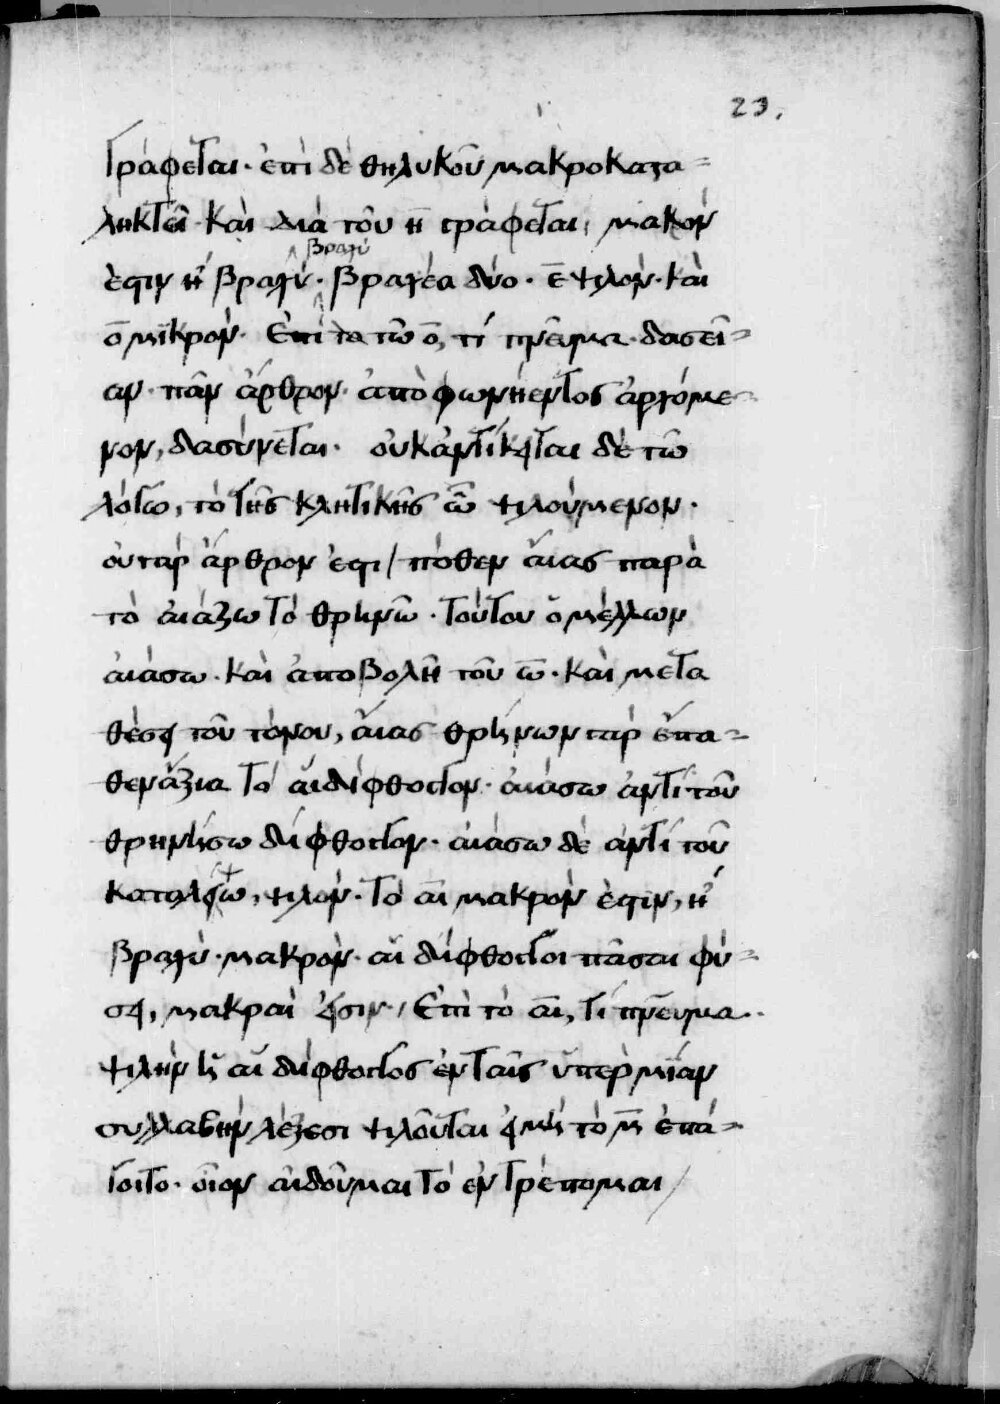 23.
γράφεται· ἐπὶ δὲ θηλυκοῦ μακροκατα=
ληκτεῖ· καὶ διὰ τοῦ η̄ γράφεται, μακρὸν
βραχὺ
ἐστιν ἢ βραχύ· βραχέα δύο· ε̄ ψιλὸν· καὶ
ο̄ μϊκρὸν· Ἐπὶ τὸ ο̄, τί πνεῦμα· δασεῖ=
αν· πᾶν ἄρθρον ἀπὸ φωνήεντος ἀρχόμε=
νον, δασύνεται· οὐκ ἀντίκειται δὲ τῶ
λόγω, τὸ τῆς κλητικῆς ὦ ψιλούμενον·
οὐ γὰρ ἄρθρον ἐστι / πόθεν αἴας παρὰ
τὸ αἰάζω τὸ θρηνῶ· τούτου ὁ μέλλων
αἰάσω· καὶ ἀποβολῆ τοῦ ω̄· καὶ μετα
θέσει τοῦ τόνου, αἴας θρήνων γὰρ ἔπα=
θεν ἄξια τὸ αι δίφθογγον· αἰάσω ἀντὶ τοῦ
θρηνήσω δίφθογγον· αἰάσω δὲ ἀντὶ τοῦ
ψιλὸν· τὸ αι μακρὸν ἐστιν, ἢ
βραχὺ· μακρὸν· αἱ δίφθογγοι πᾶσαι φύ=
σει, μακραὶ εἰσιν· / Ἐπὶ τὸ αι, τί πνεῦμα··
ψιλὴν ἡ αι δίφθογγος ἐν ταῖς ὑπὲρ μϊαν
συλλαβὴν λέξεσι ψιλοῦται εἰ μὴ τὸ μ̄ ἐπά=
γοιτο· οἷον αἰδοῦμαι τὸ ἐντρέπομαι /